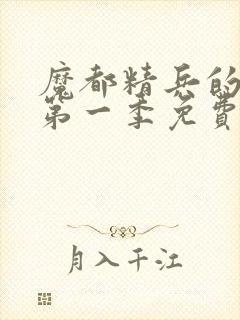 魔都精兵的
第一季免費
月入千江